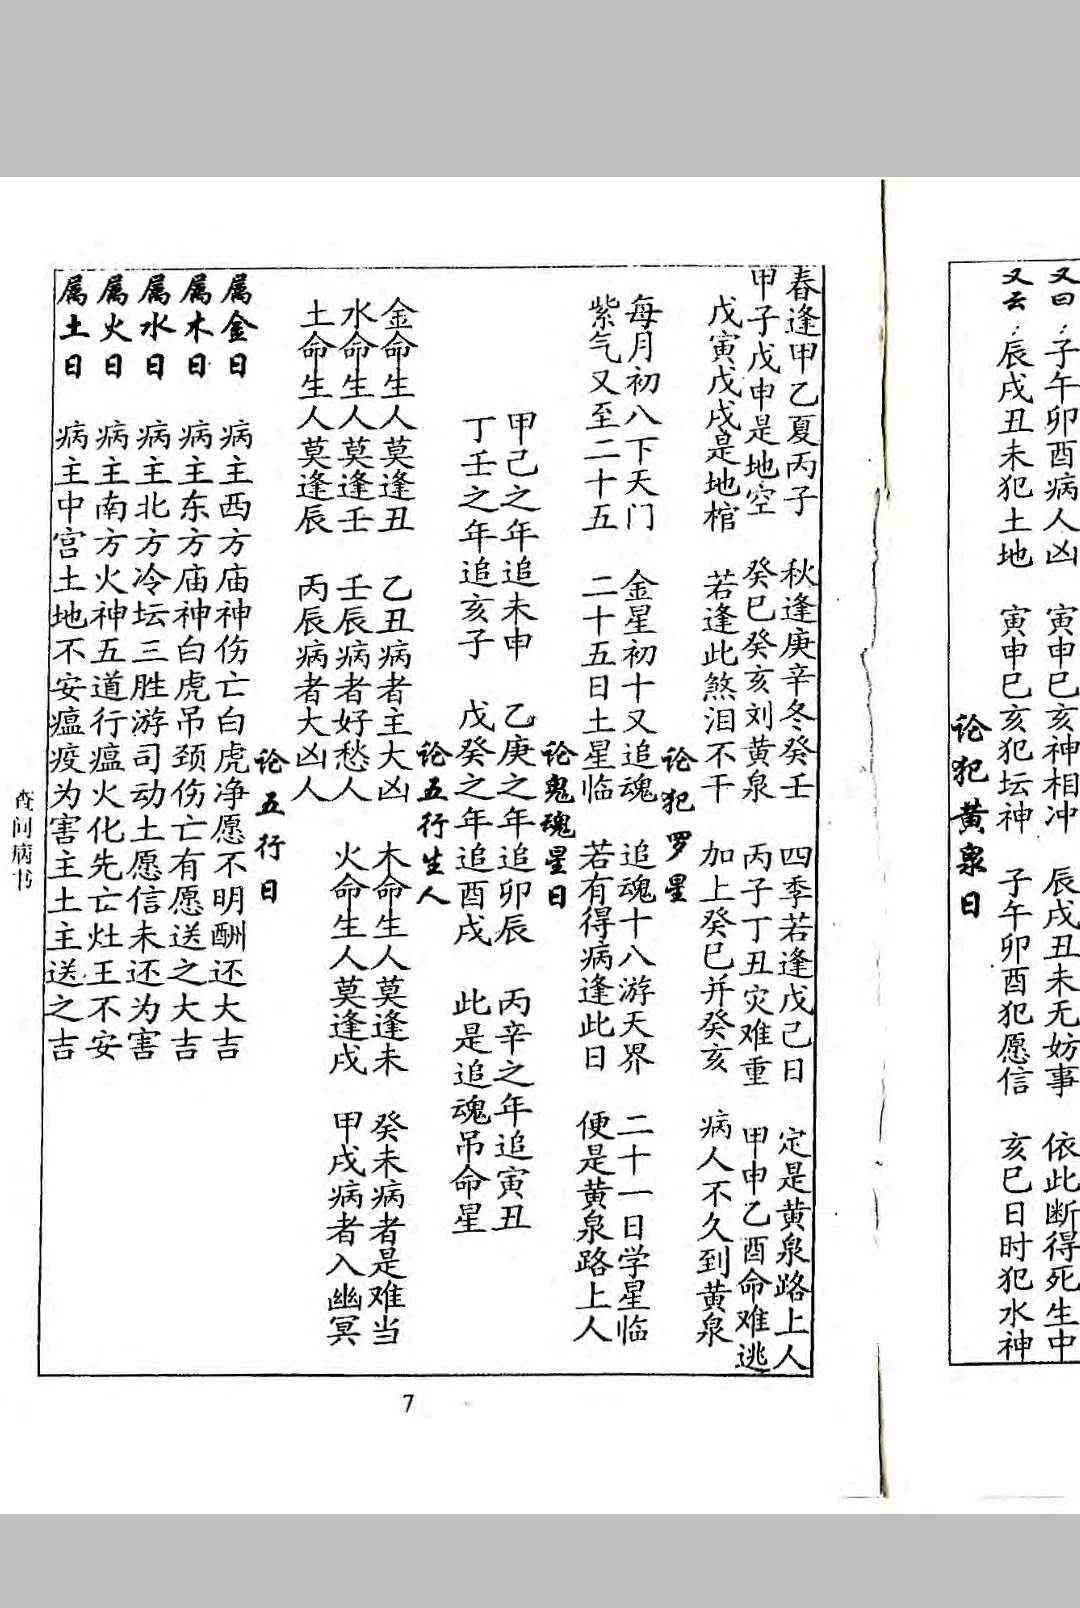 又曰：子午卯酉病人凶　寅申巳亥神相冲　辰戌丑未无妨事　依此断得死生中
又云：辰戌丑未犯土地　寅申巳亥犯坛神　子午卯酉犯愿信　亥巳日时犯水神
论犯黄泉日
春逢甲乙夏丙子　秋逢庚辛冬癸壬　四季若逢戊己日　定是黄泉路上人
甲子戊申是地空　癸巳癸亥刘黄泉　丙子丁丑灾难重　甲申乙酉命难逃
戊寅戊戌是地棺　若逢此煞泪不干　加上癸巳并癸亥　病人不久到黄泉
论犯罗星
每月初八下天门　金星初十又追魂　追魂十八游天界　二十一日学星临
紫气又至二十五　二十五日土星临　若有得病逢此日　便是黄泉路上人
论鬼魂星日
甲己之年追未申　乙庚之年追卯辰　丙辛之年追寅丑
丁壬之年追亥子　戊癸之年追酉戌　此是追魂吊命星
论五行生人
金命生人莫逢丑　乙丑病者主大凶　木命生人莫逢未　癸未病者是难当
水命生人莫逢壬　壬辰病者好愁人　火命生人莫逢戌　甲戌病者入幽冥
土命生人莫逢辰　丙辰病者大凶人
论五行日
属金日　病主西方庙神伤亡白虎净愿不明酬还大吉
属木日　病主东方庙神白虎吊颈伤亡有愿送之大吉
属水日　病主北方冷坛三胜游司动土愿信未还为害
属火日　病主南方火神五道行瘟火化先亡灶王不安
属土日　病主中宫土地不安瘟疫为害主土主送之吉
查问病书
7